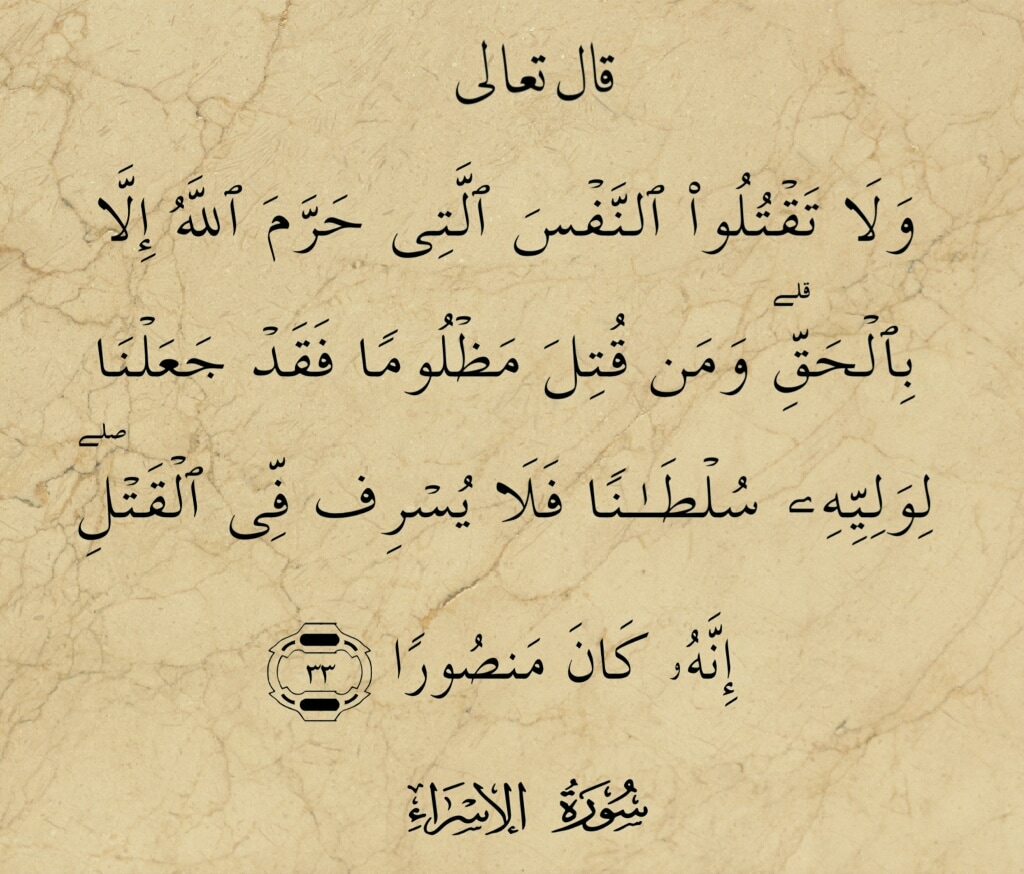 قال تعالى
وَلَا تَقْتُلُوا۟ ٱلنَّفْسَ ٱلَّتِى حَرَّمَ ٱللَّهُ إِلَّا
بِٱلْحَقِّ ۗ وَمَن قُتِلَ مَظْلُومًا فَقَدْ جَعَلْنَا
لِوَلِيِّهِۦ سُلْطَـٰنًا فَلَا يُسْرِف فِّى ٱلْقَتْلِ ۖ
إِنَّهُۥ كَانَ مَنصُورًا ٣٣
سُورَةُ الإِسْرَاءِ